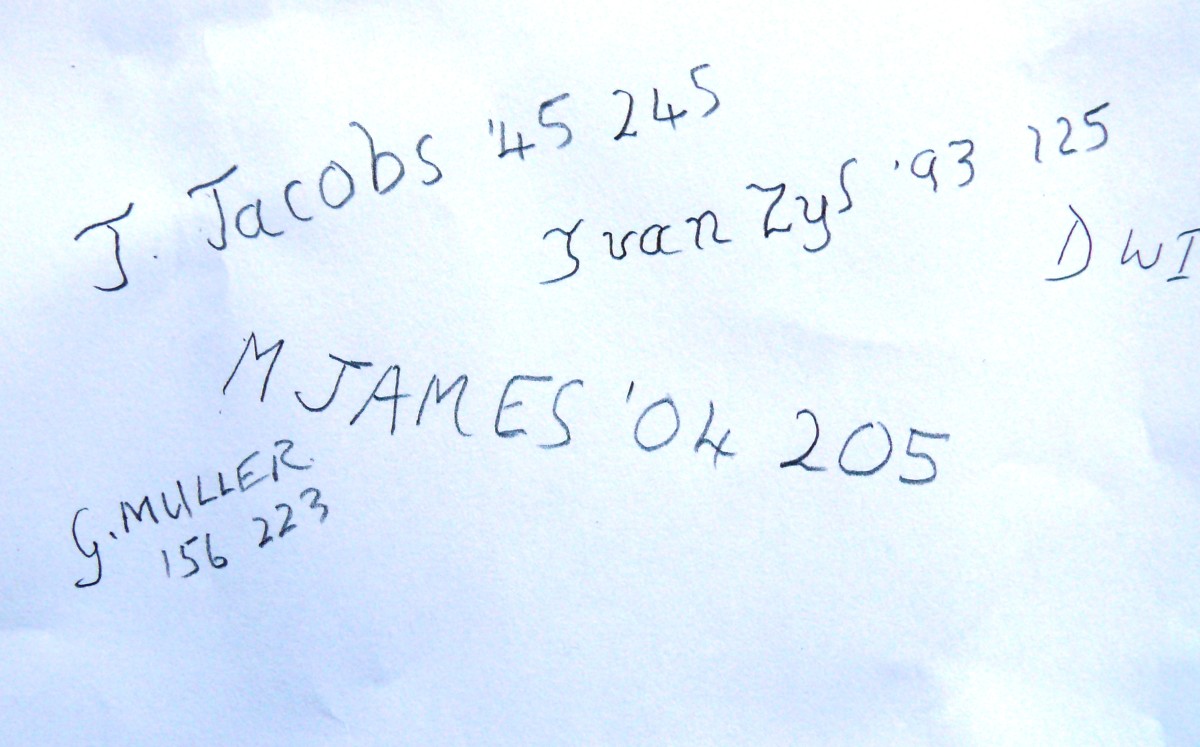 J. Jacobs '45 245
J van Zyl '93 125
DWI
M JAMES '04 205
G. MULLER
156 223